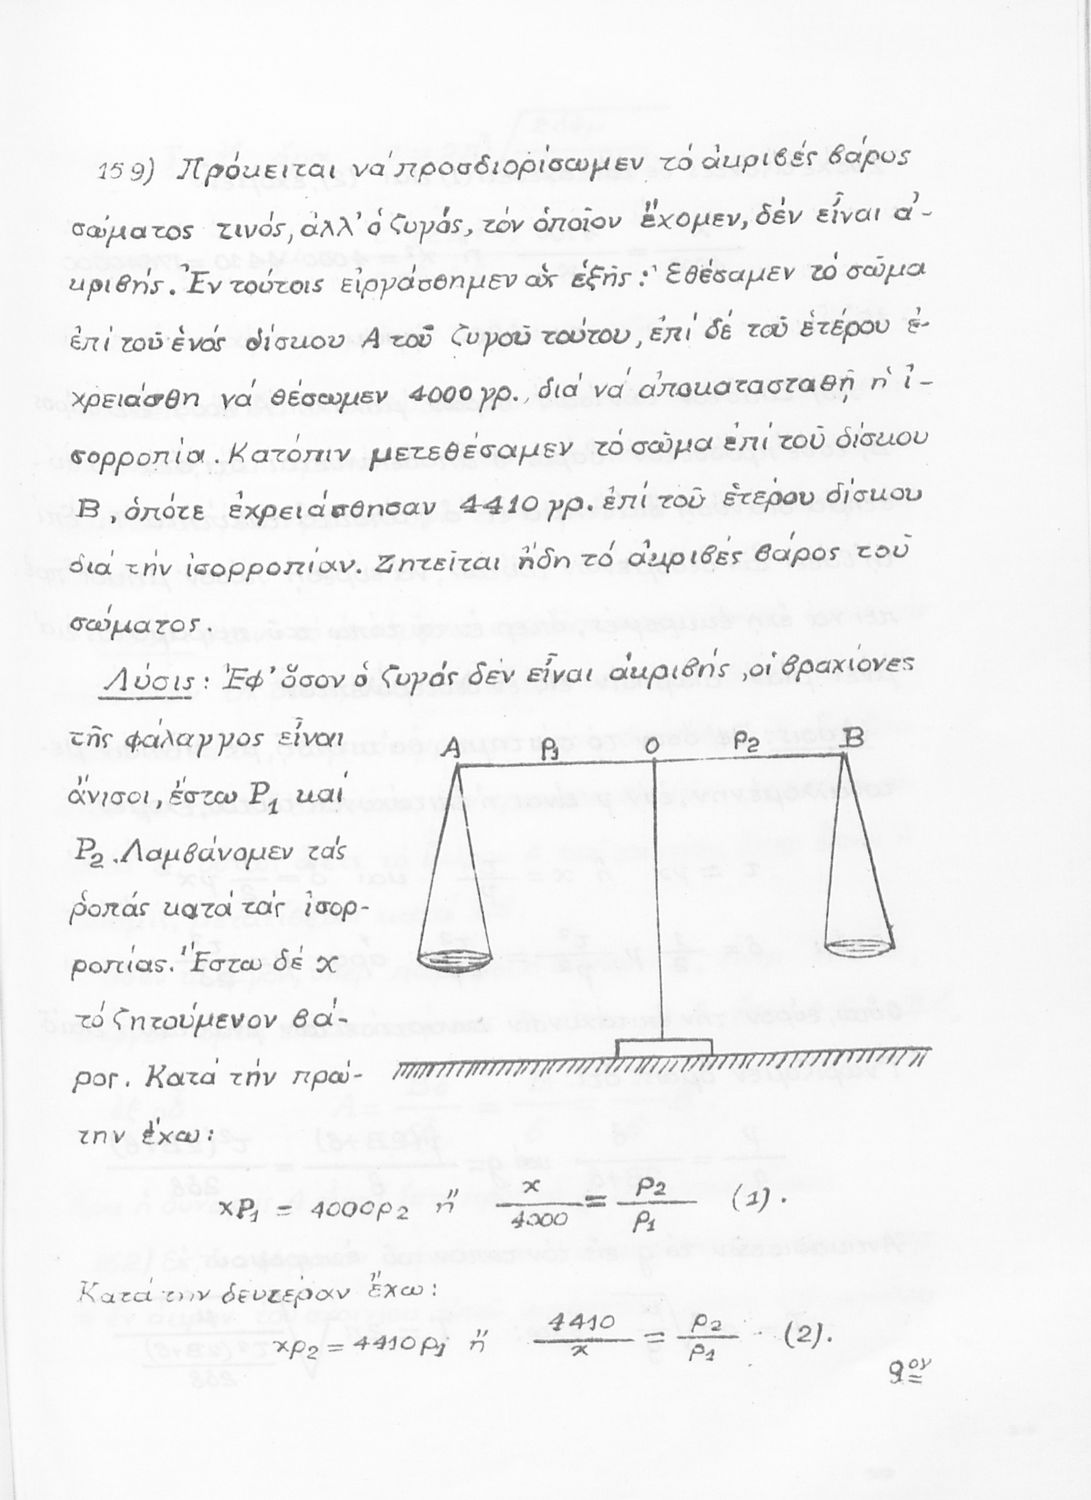 159) Πρόκειται νά προσδιορίσωμεν τό ἀκριβές βάρος
σώματος τινός, ἀλλ' ὁ ζυγός, τόν ὁποῖον ἔχομεν, δέν εἶναι ἀ-
κριβής. Ἐν τούτοις εἰργάσθημεν ὡς ἑξῆς: Ἐθέσαμεν τό σῶμα
ἐπί τοῦ ἑνός δίσκου Α τοῦ ζυγοῦ τούτου, ἐπί δέ τοῦ ἑτέρου ἐ-
χρειάσθη νά θέσωμεν 4000 γρ., διά νά ἀποκατασταθῇ ἡ ἰ-
σορροπία. Κατόπιν μετεθέσαμεν τό σῶμα ἐπί τοῦ δίσκου
Β, ὁπότε ἐχρειάσθησαν 4410 γρ. ἐπί τοῦ ἑτέρου δίσκου
διά τήν ἰσορροπίαν. Ζητεῖται ἤδη τό ἀκριβές βάρος τοῦ
σώματος.
Λύσις: Ἐφ' ὅσον ὁ ζυγός δέν εἶναι ἀκριβής, οἱ βραχίονες
τῆς φάλαγγος εἶναι
ἄνισοι, ἔστω Ρ1 καί
Ρ2. Λαμβάνομεν τάς
ῥοπάς κατά τάς ἰσορ-
ροπίας. Ἔστω δέ x
τό ζητούμενον βά-
ρος. Κατά τήν πρώ-
την ἔχω:
A ρ1 O ρ2 B
xΡ1 = 4000ρ2 ἤ x/4000 = ρ2/ρ1 (1).
Κατά την δευτέραν ἔχω:
xρ2 = 4410ρ1 ἤ 4410/x = ρ2/ρ1 (2).
9ον